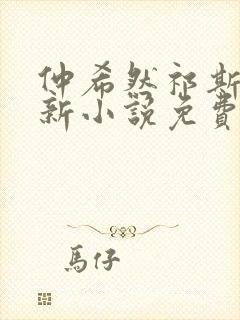 仲希然祁斯
新小說免費
馬仔